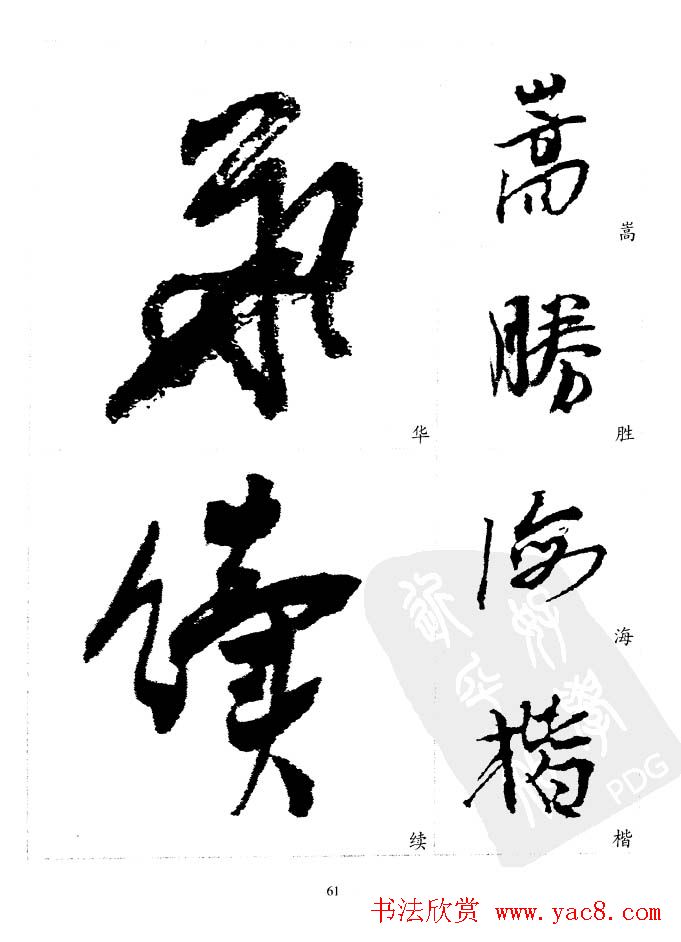 嵩
嵩
勝
胜
海
海
楷
楷
華
华
續
续
61
PDG
书法欣赏 www.yac8.com